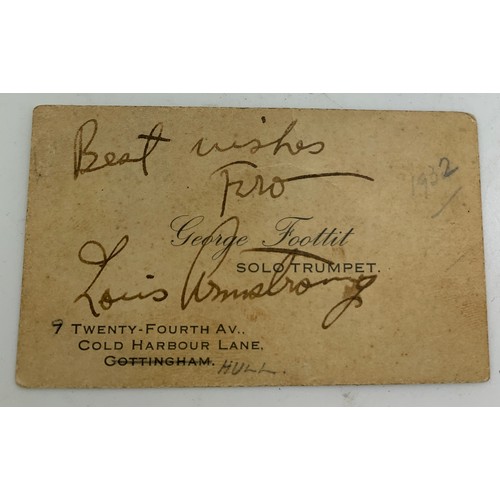 Best wishes
Fro
1932
George Foottit
SOLO TRUMPET.
Louis Armstrong
9 TWENTY-FOURTH AV.,
COLD HARBOUR LANE,
COTTINGHAM. HULL.